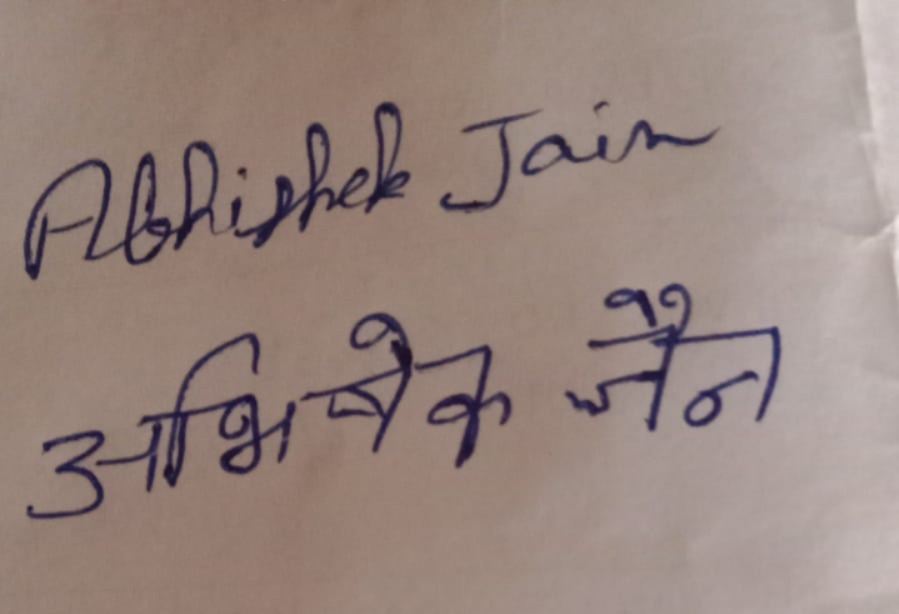 Abhishek Jain
अभिषेक जैन